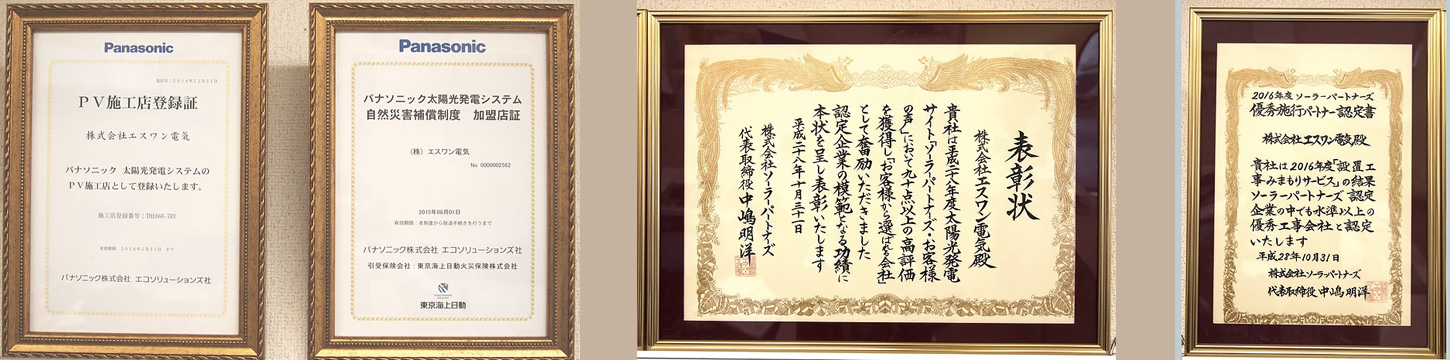 Panasonic
PV施工店登録証
株式会社エスワン電気
パナソニック 太陽光発電システムの
PV施工店として登録いたします。
パナソニック株式会社 エコソリューションズ社
Panasonic
パナソニック太陽光発電システム
自然災害補償制度 加盟店証
(株) エスワン電気
No. 0000002562
2015年08月01日
有効期限：本制度から脱退手続きを行うまで
パナソニック株式会社 エコソリューションズ社
引受保険会社：東京海上日動火災保険株式会社
東京海上日動
表彰状
株式会社エスワン電気殿
貴社は平成二十八年度太陽光発電
サイト・ソーラーパートナーズ・お客様
の声」において九十点以上の高評価
を獲得し「お客様から選ばれる会社」
として奮励いただきました
認定企業の模範となる功績に
本状を呈し表彰いたします
平成二十八年十月三十一日
株式会社ソーラーパートナーズ
代表取締役 中嶋明洋
2016年度 ソーラーパートナーズ
優秀施行パートナー認定書
株式会社エスワン電気殿
貴社は2016年度「設置工
事みまもりサービス」の結果
ソーラーパートナーズ認定
企業の中でも水準以上の
優秀工事会社と認定
いたします
平成28年10月31日
株式会社ソーラーパートナーズ
代表取締役 中嶋明洋